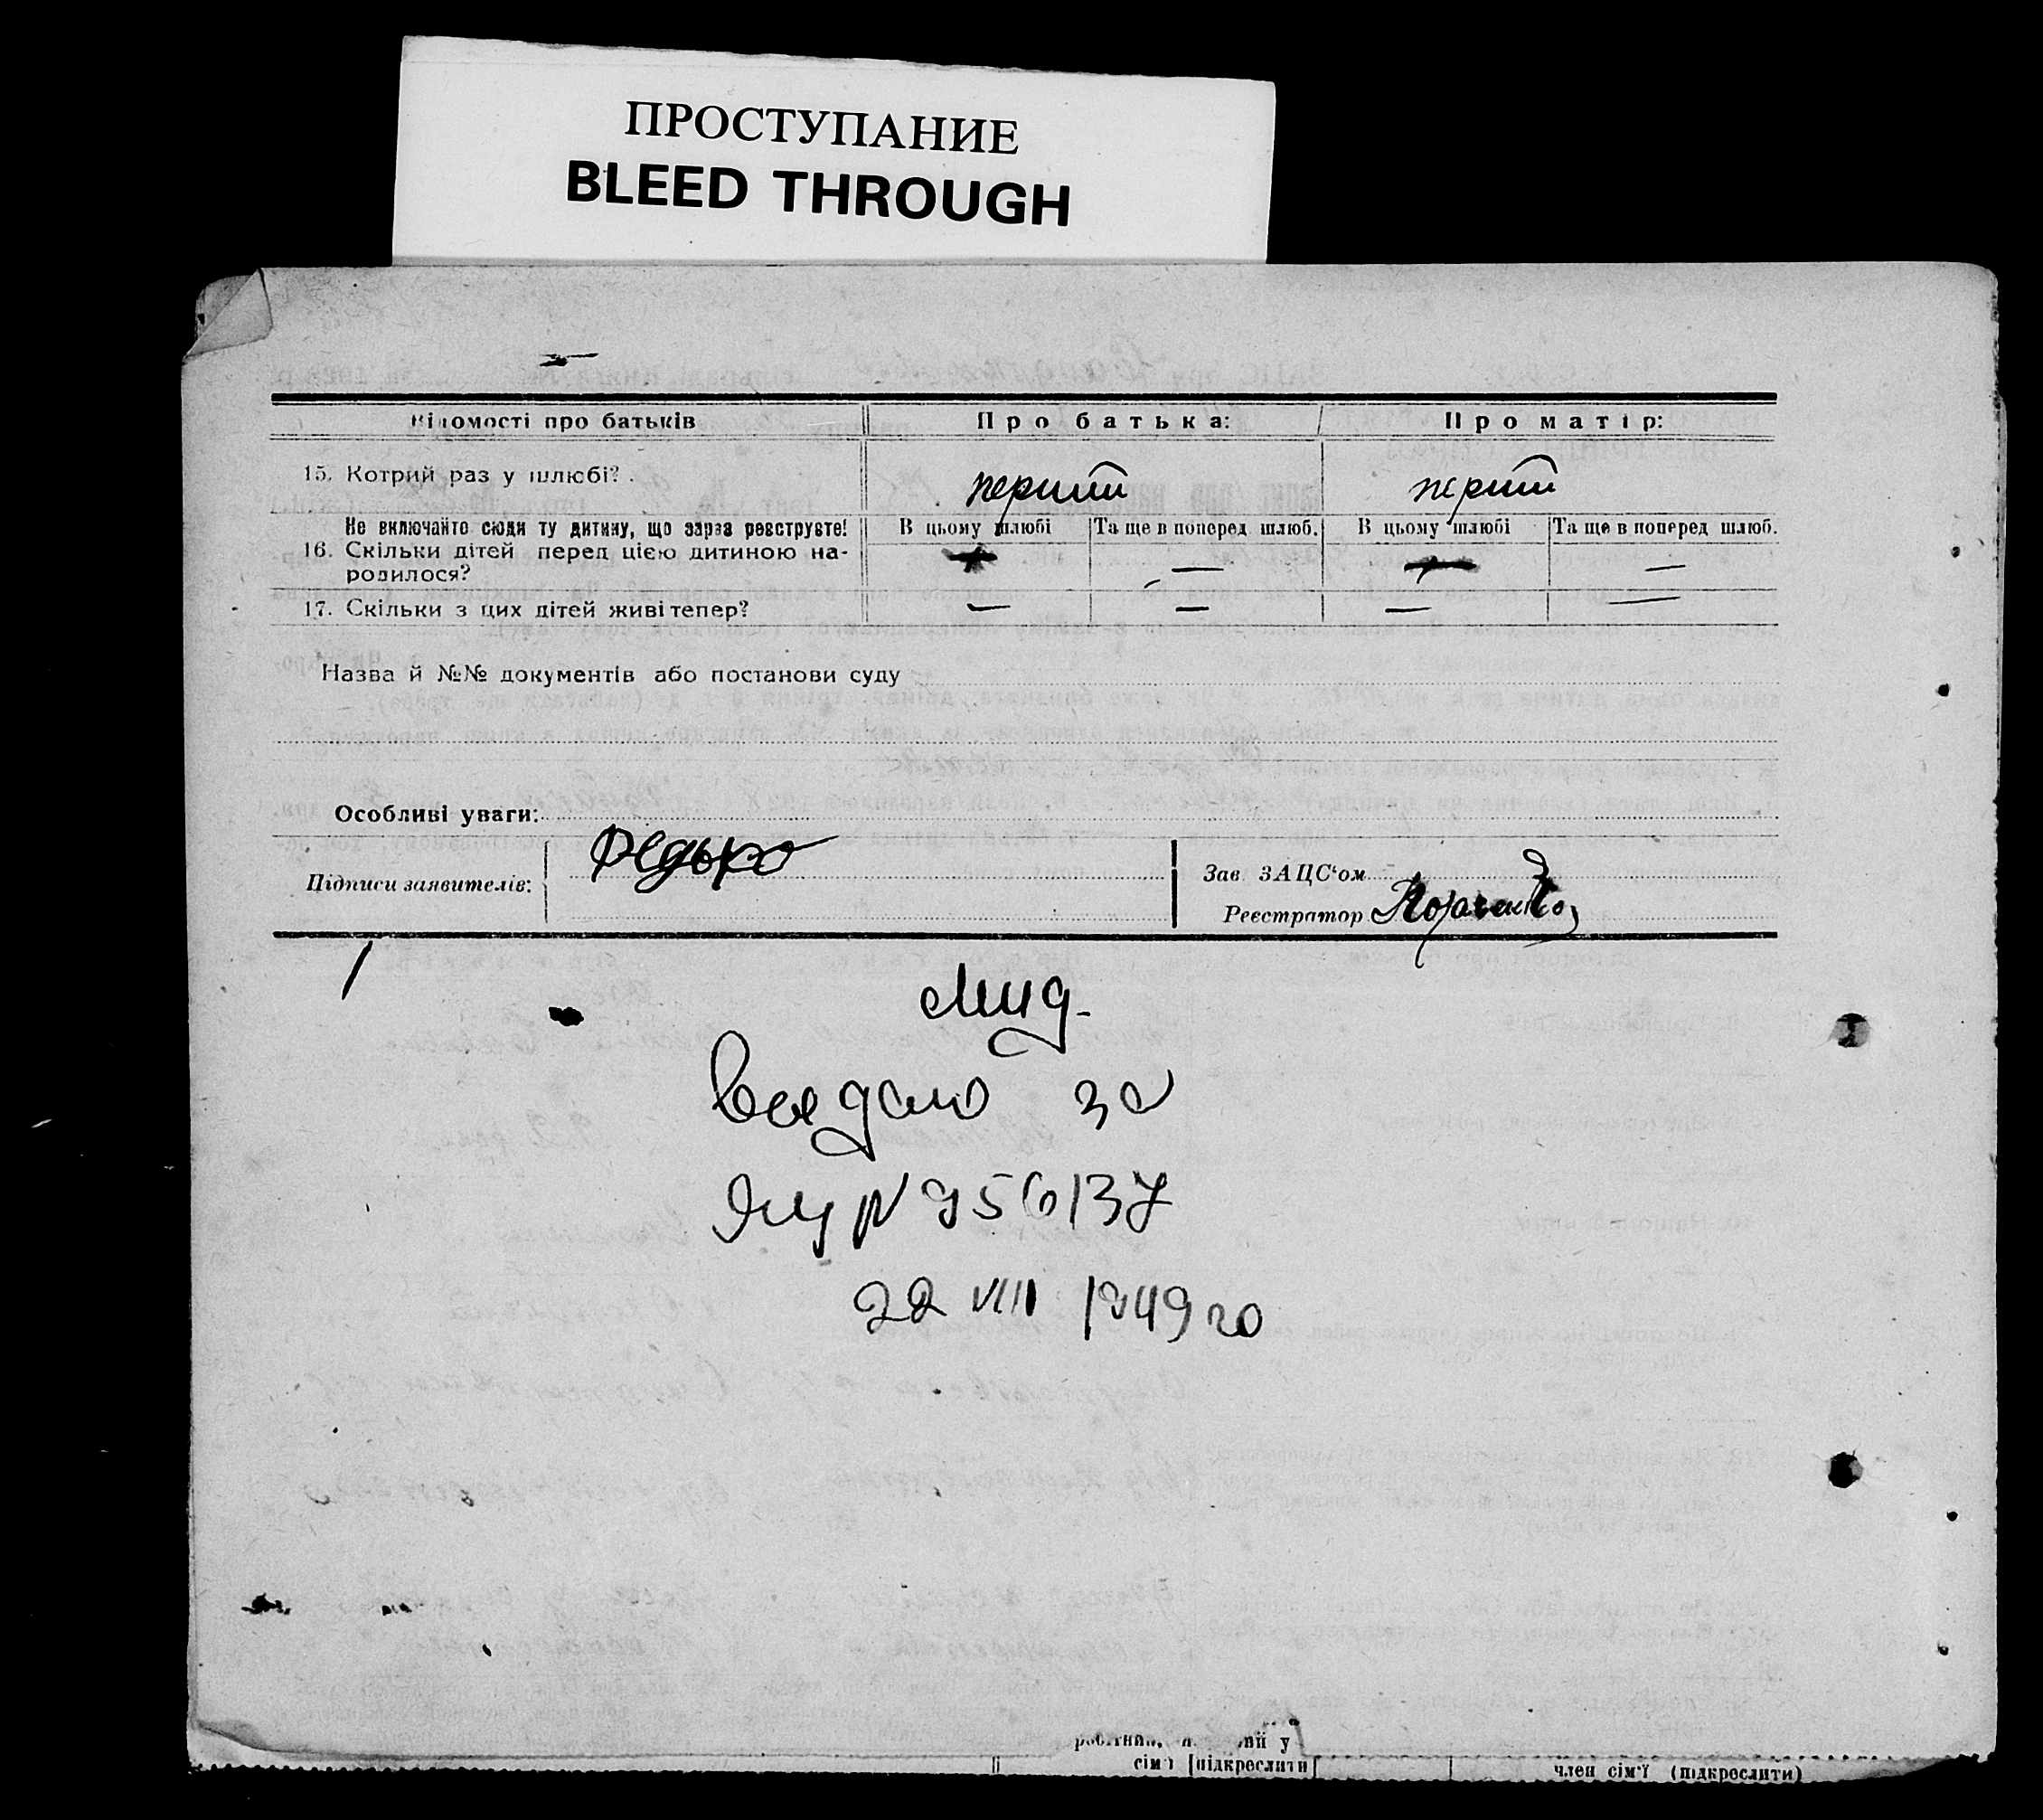 ПРОСТУПАНИЕ
BLEED THROUGH
Відомості про батьків
Про батька:
Про матір:
15. Котрий раз у шлюбі?
перший
перший
Не включайте сюди ту дитину, що зараз реєструєте!
В цьому шлюбі
Та ще в поперед шлюб.
В цьому шлюбі
Та ще в поперед шлюб.
16. Скільки дітей перед цією дитиною на-
родилося?
— —
17. Скільки з цих дітей живі тепер?
— — — —
Назва й №№ документів або постанови суду
Особливі уваги:
Підписи заявителів:
Федько
Зав ЗАЦС‘ом
Реєстратор
за
N 956137
22 VIII 1949 го
сім'ї (підкреслити)
член сім'ї (підкреслити)